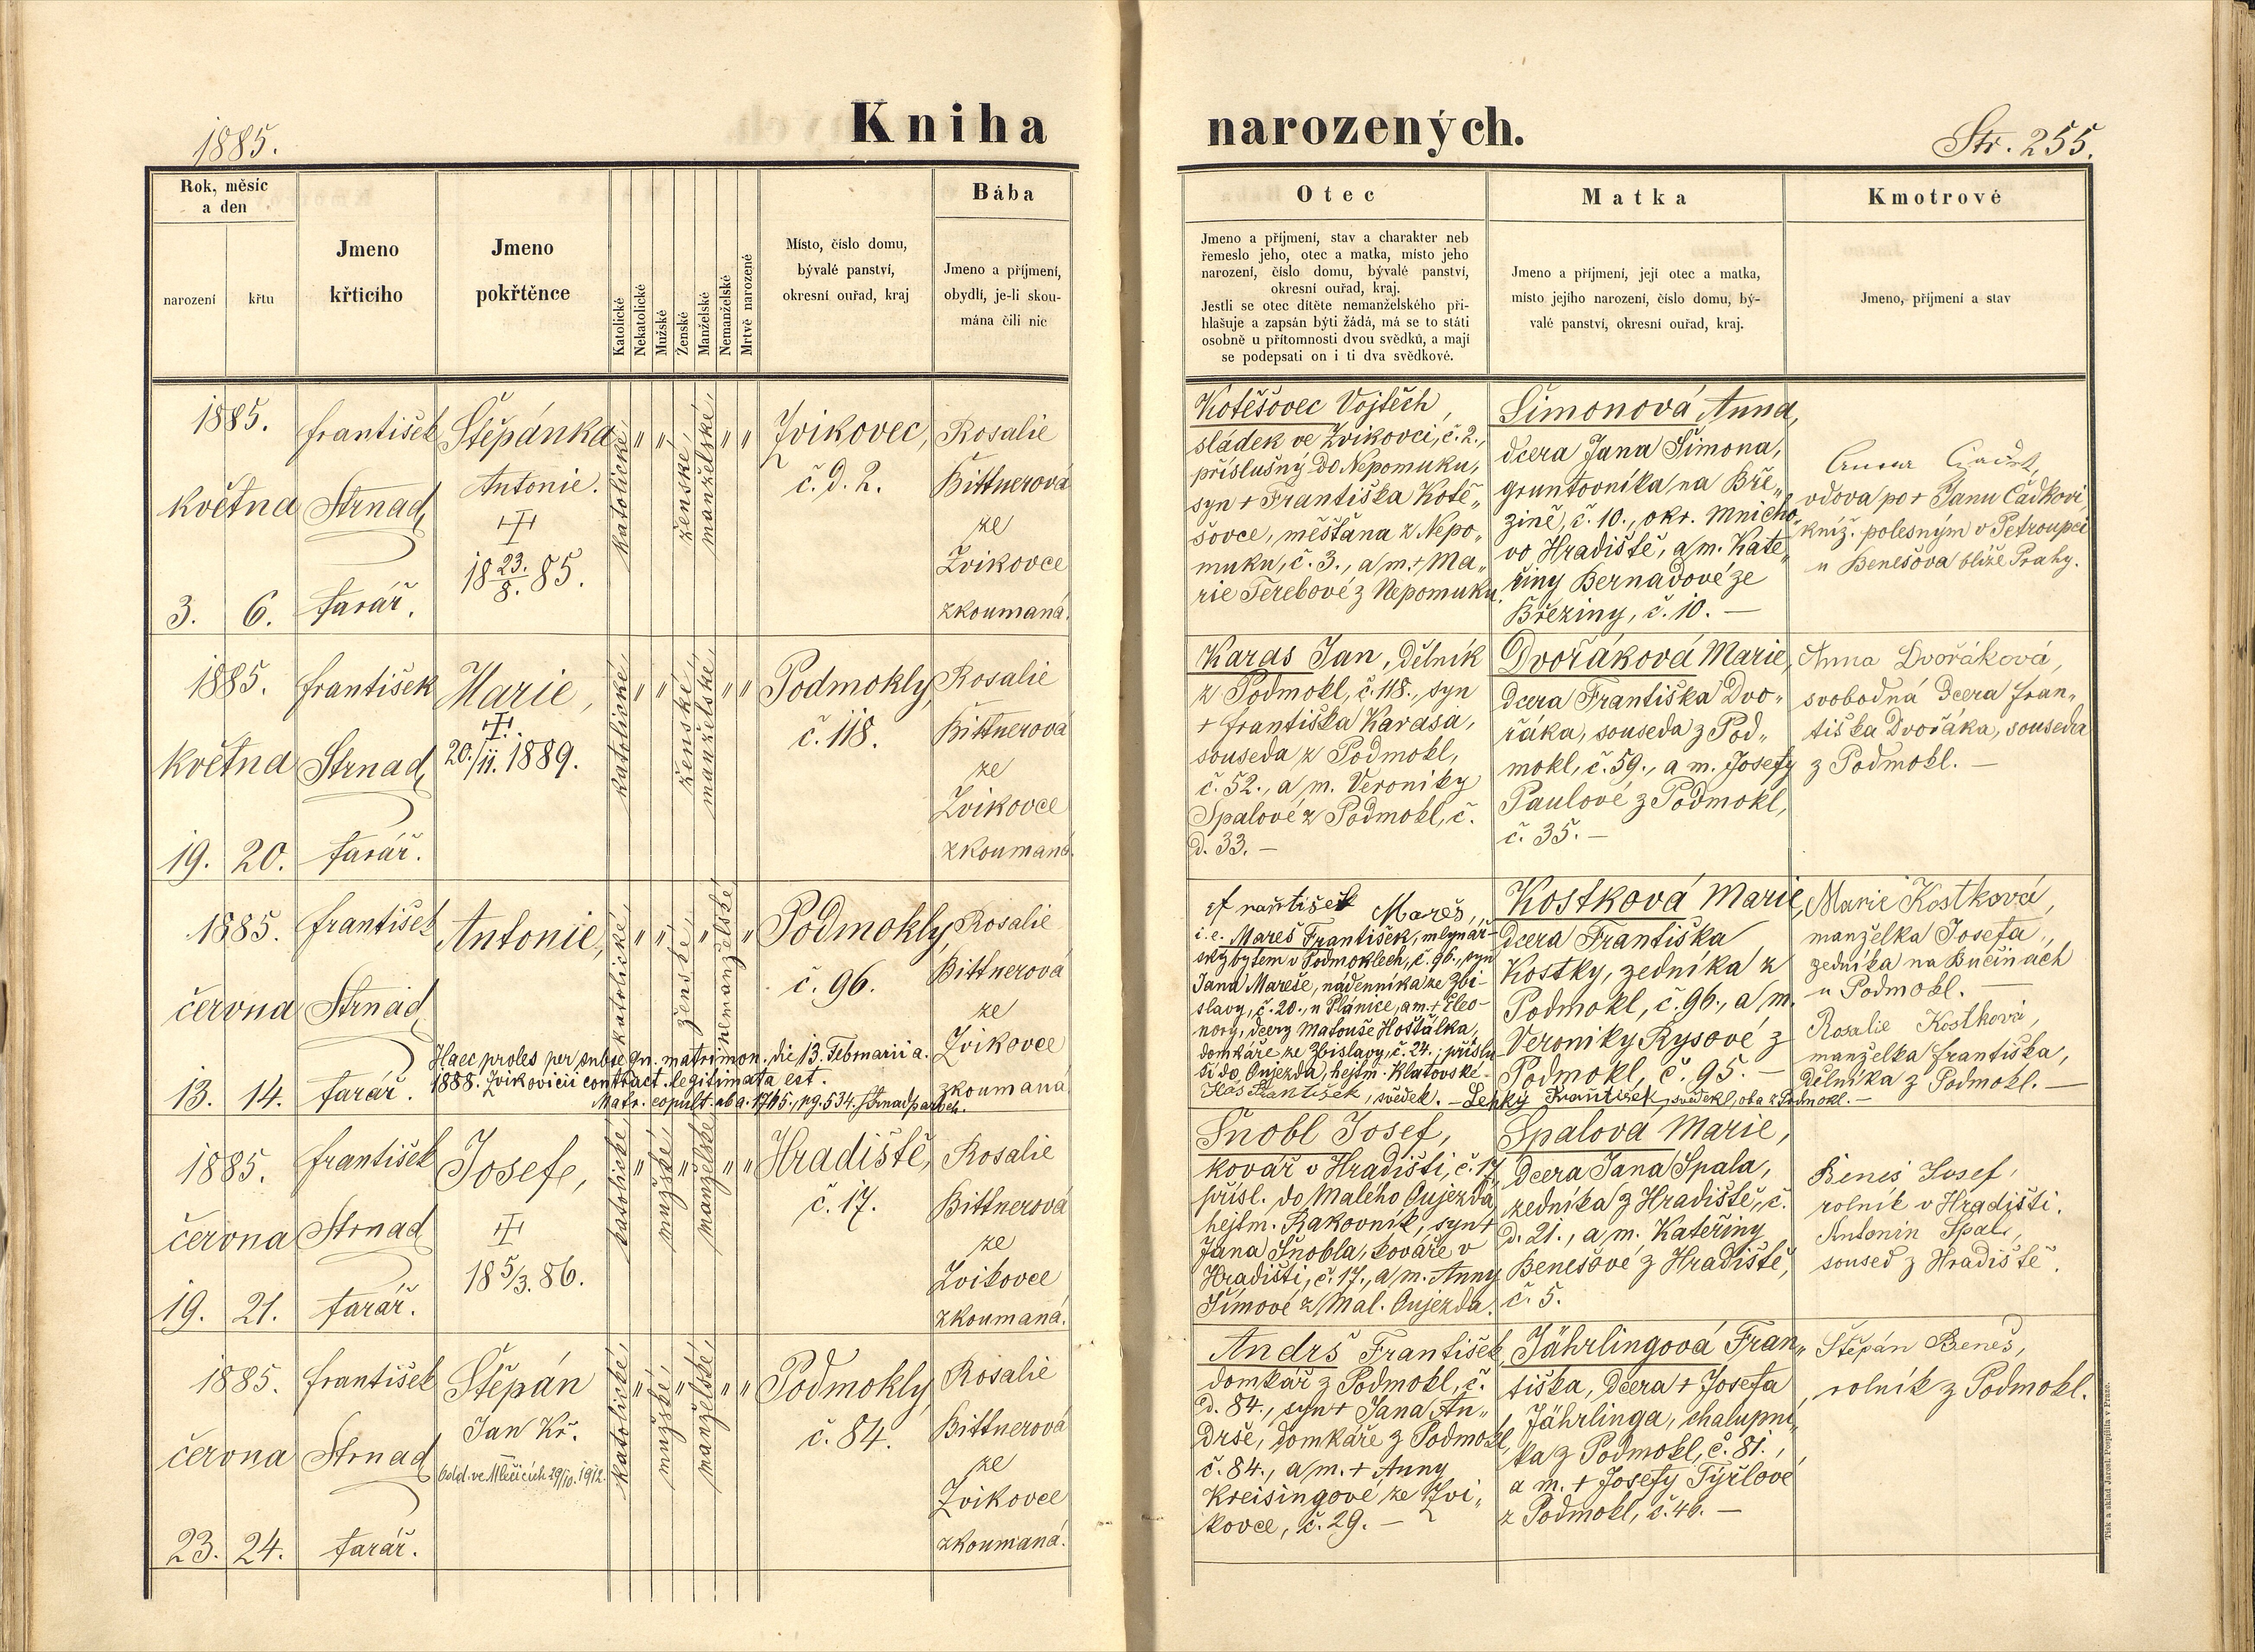 1885.
Kniha narozených.
Str. 255.
Rok, měsíc
a den
narození
křtu
Jmeno
křticího
Jmeno
pokřtěnce
Katolické
Nekatolické
Mužské
Ženské
Manželské
Nemanželské
Mrtvě narozené
Místo, číslo domu,
bývalé panství,
okresní ouřad, kraj
Bába
Jmeno a příjmení,
obydlí, je-li skou-
mána čili nic
Otec
Jmeno a příjmení, stav a charakter neb
řemeslo jeho, otec a matka, místo jeho
narození, číslo domu, bývalé panství,
okresní ouřad, kraj.
Jestli se otec dítěte nemanželského při-
hlašuje a zapsán býti žádá, má se to státi
osobně u přítomnosti dvou svědků, a mají
se podepsati on i ti dva svědkové.
Matka
Jmeno a příjmení, její otec a matka,
místo jejího narození, číslo domu, bý-
valé panství, okresní ouřad, kraj.
Kmotrové
Jmeno, příjmení a stav
1885.
května
3. 6.
František
Strnad,
farář.
Štěpánka
Antonie.
18 23./8. 85.
katolické,
" "
ženské,
manželské,
" "
Zvikovec,
č. d. 2.
Rosalie
Bittnerová
ze
Zvikovce
zkoumaná.
Kotěšovec Vojtěch,
sládek ve Zvikovci, č. 2.,
příslušný do Nepomuku,
syn + Františka Kotě„
šovce, měšťana z Nepo„
muku, č. 3., a m. + Ma„
rie Terebové z Nepomuku.
Šimonová Anna,
dcera Jana Šimona,
gruntovníka na Bře„
zině, č. 10., okr. Mnicho„
vo Hradiště, a m. Kate„
řiny Bernadové ze
Březiny, č. 10. —
Anna
vdova po + Janu Čadkovi,
kníž. polesným v Petroupci
u Benešova blíže Prahy.
1885.
května
19. 20.
František
Strnad,
farář.
Marie,
20./11. 1889.
katolické,
" "
ženské,
manželské,
" "
Podmokly,
č. 118.
Rosalie
Bittnerová
ze
Zvikovce
zkoumaná.
Karas Jan, dělník
z Podmokl, č. 118., syn
+ Františka Karasa,
souseda z Podmokl,
č. 52., a m. Veroniky
Spalové z Podmokl, č.
d. 33. —
Dvořáková Marie,
dcera Františka Dvo„
řáka, souseda z Pod„
mokl, č. 59., a m. Josefy
Paulové z Podmokl,
č. 35. —
Anna Dvořáková,
svobodná dcera Fran„
tiška Dvořáka, souseda
z Podmokl. —
1885.
června
13. 14.
František
Strnad,
farář.
Antonie,
katolické,
" "
ženské,
"
nemanželské
"
Podmokly,
č. 96.
Rosalie
Bittnerová
ze
Zvikovce
zkoumaná
Haec proles per subseqn. matrimon. die 13. Februarii a.
1888. Zvikovicii contract. legitimata est.
Matr. copult. ab a. 1785., pg. 534. Strnad, paroch.
František Mareš,
i. e. Mareš František, mlynář-
ský bytem v Podmoklech, č. 96., syn
Jana Mareše, nádenníka ze Zbi-
slavy, č. 20., u Plánice, a m. + Eleo-
nory, dcery Matouše Hošťálka,
domkáře ze Zbislavy, č. 24.; příslu
ší do Oujezda, hejtm. Klatovské-
František, svědek. — Lenký František, svědek, oba z Podmokl. —
Kostková Marie,
dcera Františka
Kostky, zedníka z
Podmokl, č. 96., a m.
Veroniky Rysové z
Podmokl, č. 95. —
Marie Kostková,
manželka Josefa,
zedníka na Bučinách
u Podmokl. —
Rosalie Kostková,
manželka Františka,
dělníka z Podmokl. —
1885.
června
19. 21.
František
Strnad
farář.
Josef,
18 5/3. 86.
katolické,
"
mužské,
"
manželské,
" "
Hradiště,
č. 17.
Rosalie
Bittnerová
ze
Zvikovce
zkoumaná.
Šnobl Josef,
kovář v Hradišti, č. 17,
přísl. do Malého Oujezda,
hejtm. Rakovník, syn +
Jana Šnobla, kováře v
Hradišti, č. 17., a m. Anny
Šímové z Mal. Oujezda.
Spalová Marie,
dcera Jana Spala,
zedníka z Hradiště, č.
d. 21., a m. Kateřiny
Benešové z Hradiště,
č. 5.
Beneš Josef,
rolník v Hradišti.
Antonín Spal,
soused z Hradiště.
1885.
června
23. 24.
František
Strnad
farář.
Štěpán
Jan Kř.
Odd. ve Mlečicích 29/10. 1912.
katolické,
"
mužské,
"
manželské,
" "
Podmokly,
č. 84.
Rosalie
Bittnerová
ze
Zvikovce
zkoumaná.
Andrš František,
domkář z Podmokl, č.
d. 84., syn + Jana An„
drše, domkáře z Podmokl,
č. 84., a m. + Anny
Kreisingové ze Zvi„
kovce, č. 29. —
Jährlingová Fran„
tiška, dcera + Josefa
Jährlinga, chalupní„
ka z Podmokl, č. 81.,
a m. + Josefy Týřlové
z Podmokl, č. 46. —
Štěpán Beneš,
rolník z Podmokl.
Tisk a sklad Jarosl. Pospíšila v Praze.